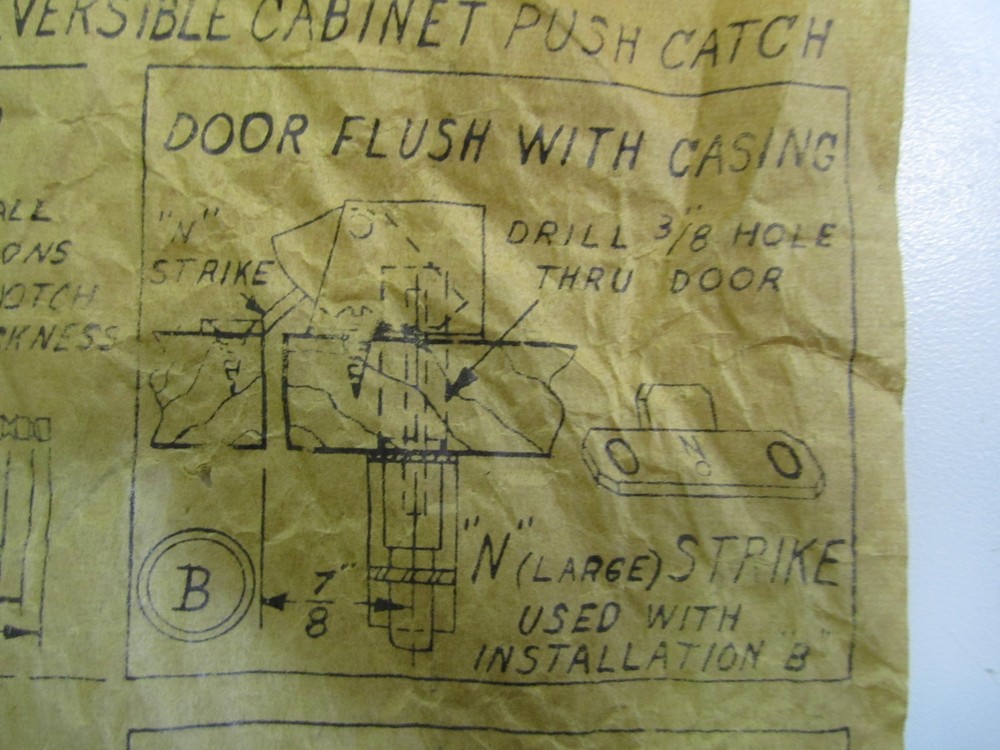 VERSIBLE CABINET PUSH CATCH
DOOR FLUSH WITH CASING
ALL
"N"
DRILL 3/8" HOLE
ONS
STRIKE
THRU DOOR
OTCH
KNESS
NO
"N" (LARGE) STRIKE
B
7/8"
USED WITH
INSTALLATION "B"